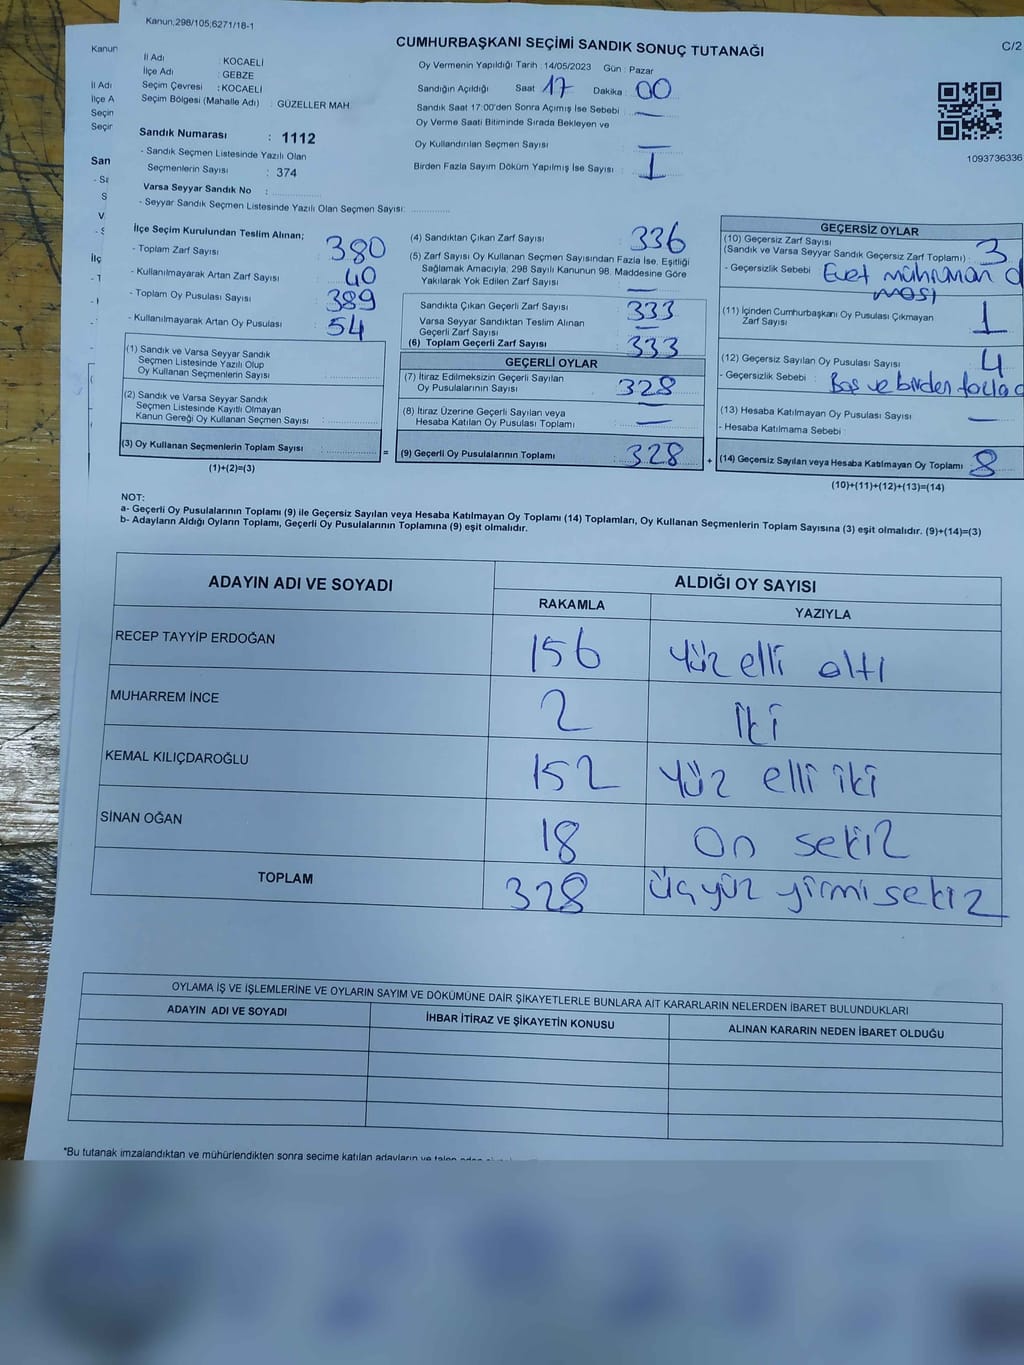 Kanun;298/105,6271/18-1
CUMHURBAŞKANI SEÇİMİ SANDIK SONUÇ TUTANAĞI
C/2
Kanun
İl Adı : KOCAELİ
İlçe Adı : GEBZE
Seçim Çevresi : KOCAELİ
Seçim Bölgesi (Mahalle Adı) : GÜZELLER MAH.
İl Adı
İlçe A
Seçin
Seçir
Oy Vermenin Yapıldığı Tarih : 14/05/2023 Gün : Pazar
Sandığın Açıldığı Saat : 17 Dakika : 00
Sandık Saat 17:00'den Sonra Açımış İse Sebebi : —
Oy Verme Saati Bitiminde Sırada Bekleyen ve
Oy Kullandırılan Seçmen Sayısı : —
Birden Fazla Sayım Döküm Yapılmış İse Sayısı : 1
1093736336
Sandık Numarası : 1112
- Sandık Seçmen Listesinde Yazılı Olan
Seçmenlerin Sayısı : 374
Varsa Seyyar Sandık No :
- Seyyar Sandık Seçmen Listesinde Yazılı Olan Seçmen Sayısı:
San
İlçe Seçim Kurulundan Teslim Alınan;
- Toplam Zarf Sayısı : 380
- Kullanılmayarak Artan Zarf Sayısı : 40
- Toplam Oy Pusulası Sayısı : 389
- Kullanılmayarak Artan Oy Pusulası : 54
(1) Sandık ve Varsa Seyyar Sandık
Seçmen Listesinde Yazılı Olup
Oy Kullanan Seçmenlerin Sayısı :
(2) Sandık ve Varsa Seyyar Sandık
Seçmen Listesinde Kayıtlı Olmayan
Kanun Gereği Oy Kullanan Seçmen Sayısı :
(3) Oy Kullanan Seçmenlerin Toplam Sayısı :
(1)+(2)=(3)
=
(4) Sandıktan Çıkan Zarf Sayısı : 336
(5) Zarf Sayısı Oy Kullanan Seçmen Sayısından Fazla İse, Eşitliği
Sağlamak Amacıyla, 298 Sayılı Kanunun 98. Maddesine Göre
Yakılarak Yok Edilen Zarf Sayısı : —
Sandıkta Çıkan Geçerli Zarf Sayısı : 333
Varsa Seyyar Sandıktan Teslim Alınan
Geçerli Zarf Sayısı : —
(6) Toplam Geçerli Zarf Sayısı : 333
GEÇERLİ OYLAR
(7) İtiraz Edilmeksizin Geçerli Sayılan
Oy Pusulalarının Sayısı : 328
(8) İtiraz Üzerine Geçerli Sayılan veya
Hesaba Katılan Oy Pusulası Toplamı : —
(9) Geçerli Oy Pusulalarının Toplamı : 328
+
GEÇERSİZ OYLAR
(10) Geçersiz Zarf Sayısı
(Sandık ve Varsa Seyyar Sandık Geçersiz Zarf Toplamı) : 3
- Geçersizlik Sebebi : Evet
(11) İçinden Cumhurbaşkanı Oy Pusulası Çıkmayan
Zarf Sayısı : 1
(12) Geçersiz Sayılan Oy Pusulası Sayısı : 4
- Geçersizlik Sebebi : Boş ve birden fazla
(13) Hesaba Katılmayan Oy Pusulası Sayısı : —
- Hesaba Katılmama Sebebi :
(14) Geçersiz Sayılan veya Hesaba Katılmayan Oy Toplamı : 8
(10)+(11)+(12)+(13)=(14)
NOT:
a- Geçerli Oy Pusulalarının Toplamı (9) ile Geçersiz Sayılan veya Hesaba Katılmayan Oy Toplamı (14) Toplamları, Oy Kullanan Seçmenlerin Toplam Sayısına (3) eşit olmalıdır. (9)+(14)=(3)
b- Adayların Aldığı Oyların Toplamı, Geçerli Oy Pusulalarının Toplamına (9) eşit olmalıdır.
ADAYIN ADI VE SOYADI
ALDIĞI OY SAYISI
RAKAMLA YAZIYLA
RECEP TAYYİP ERDOĞAN 156 yüz elli altı
MUHARREM İNCE 2 iki
KEMAL KILIÇDAROĞLU 152 yüz elli iki
SİNAN OĞAN 18 On sekiz
TOPLAM 328 üçyüz yirmi sekiz
OYLAMA İŞ VE İŞLEMLERİNE VE OYLARIN SAYIM VE DÖKÜMÜNE DAİR ŞİKAYETLERLE BUNLARA AİT KARARLARIN NELERDEN İBARET BULUNDUKLARI
ADAYIN ADI VE SOYADI İHBAR İTİRAZ VE ŞİKAYETİN KONUSU ALINAN KARARIN NEDEN İBARET OLDUĞU
*Bu tutanak imzalandıktan ve mühürlendikten sonra seçime katılan adayların ve